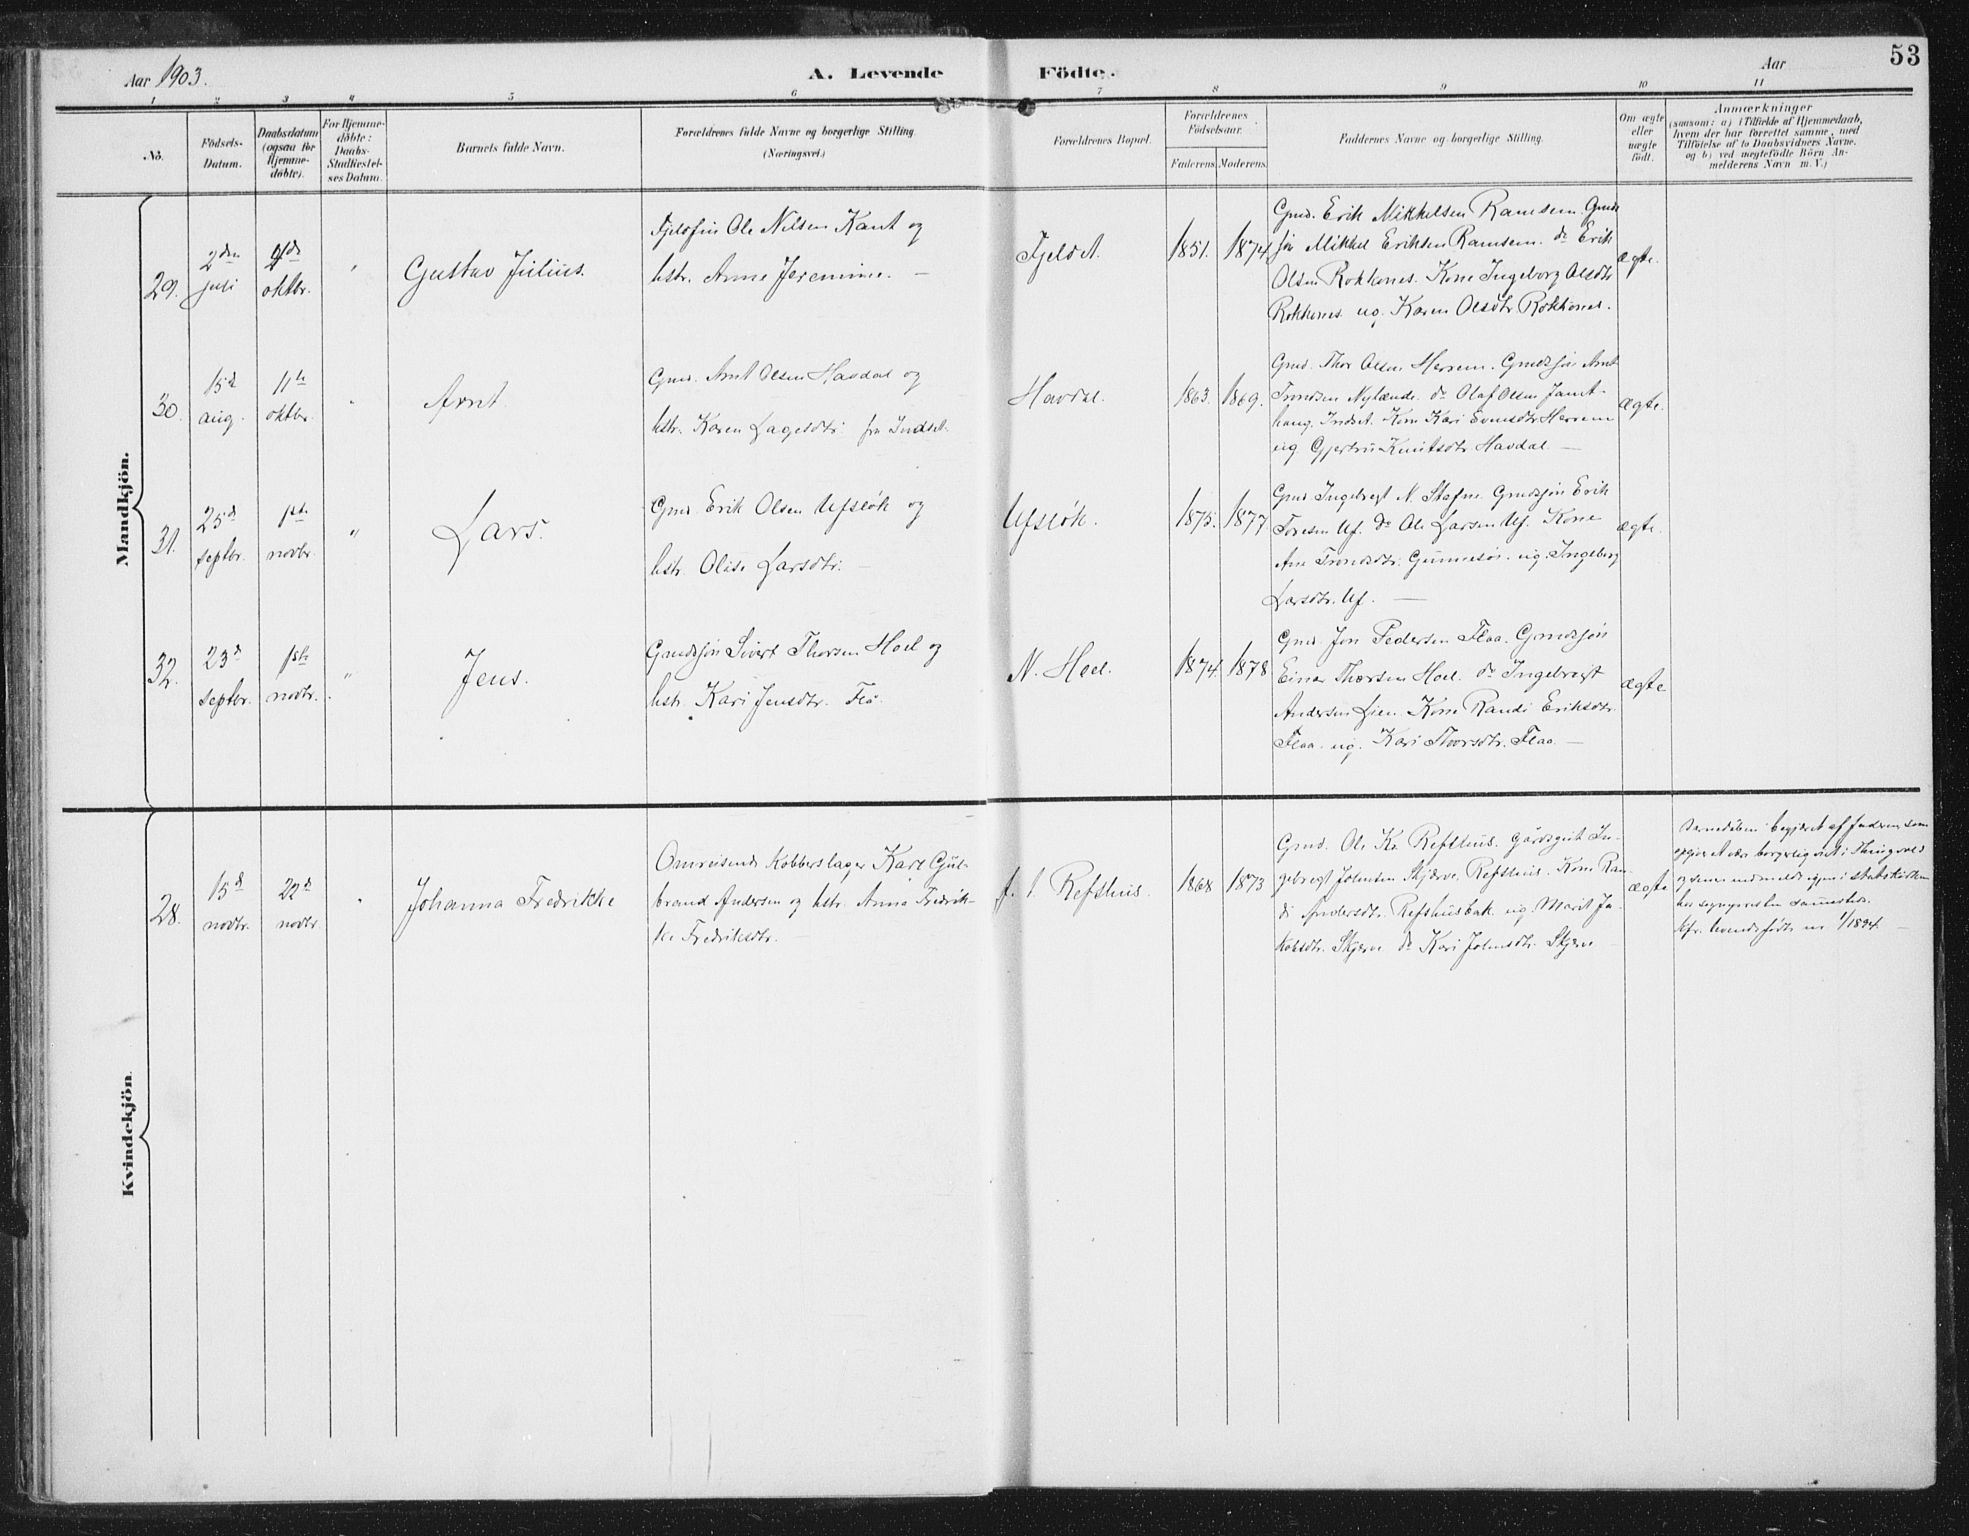 Aar 1903.
A. Levende Födte.
Aar
53
1 2 3 4 5 6 7 8 9 10 11
No.
Födsels-
Datum.
Daabsdatum
(ogsaa for
Hjemme-
döbte).
For Hjemme-
döbte:
Daabs-
Stadfæstel-
ses Datum.
Barnets fulde Navn.
Forældrenes fulde Navne og borgerlige Stilling.
(Næringsvei.)
Forældrenes Bopæl.
Forældrenes
Födselsaar.
Faderens. Moderens.
Faddernes Navne og borgerlige Stilling.
Om ægte
eller
uægte
födt.
Anmærkninger
(saasom: a) i Tilfælde af Hjemmedaab,
hvem der har forrettet samme, med
Tilföielse af to Daabsvidners Navne.
og b) ved uægtefödte Börn An-
melderens Navn m. V.)
Mandkjön.
29.
2den
juli
oktbr.
"
Gustav Julius.
Fjeldfin Ole Nilsen Kant og
hstr. Anne Jeremine. —
Fjeldet.
1851. 1874.
Gmd. Erik Mikkelsen Ramsem. Gmds
søn Mikkel Eriksen Ramsem. do Erik
Olsen Rokkones. Kone Ingeborg Olsdtr
Rokkones og. Karen Olsdtr Rokkones.
ægte.
30.
15d
aug.
11te
oktbr.
"
Arnt.
Gmd. Arnt Olsen Havdal og
hstr. Karen Lagesdtr. fra Indset.
Havdal.
1863. 1869.
Gmd. Thor Olsen Herrem. Gmdsjøn Arnt
Trondsen Nylænde. do Olaf Olsen Jamt-
haug. Indset. Kone Kari Evensdtr Herrem
og Gjertru Knutsdtr. Havdal. —
ægte.
31.
25d
septbr.
1ste
novbr.
"
Lars.
Gmd Erik Olsen Ufsløk og
hstr. Olise Larsdtr. —
Ufsløk.
1875. 1877.
Gmd Ingebregt N. Stafne. Gmdsjøn Erik
Toresen Uf. do Ole Larsen Uf. Kone
Ane Trondsdtr. og. Ingeborg
Larsdtr. Uf. —
ægte.
32.
23d
septbr.
1ste
novbr.
"
Jens.
Gmdsjøn Sivert Thorsen Hoel og
hstr. Kari Jensdtr. Flå.
N. Hoel.
1874. 1878
Gmd. Jon Pedersen Flaa. Gmdsjøn
Einar Thorsen Hoel. do Ingebregt
Andersen Lien. Kone Randi Eriksdtr.
Flaa. og. Kari Thorsdtr. Flaa. —
ægte
Kvindekjön.
28.
15d
novbr.
22d
novbr.
"
Johanna Fredrikke
Omreisende Kobberslager Karl Gul-
brand Andersen og hstr. Anna Fredrik-
ke Fredriksdtr. —
f. t. Refshus.
1868 1873
Gmd. Ole Kr. Refshus. gårdsgut In-
gebregt Johnsen Skjerve, Refshus. Kone Ran-
di Andersdtr. Refshusbak og. Marit Ja-
kobsdtr. Skjerve do Kari Johnsdtr. Skjerve
ægte
begjæret af faderen som
borgerlig
1/1894.